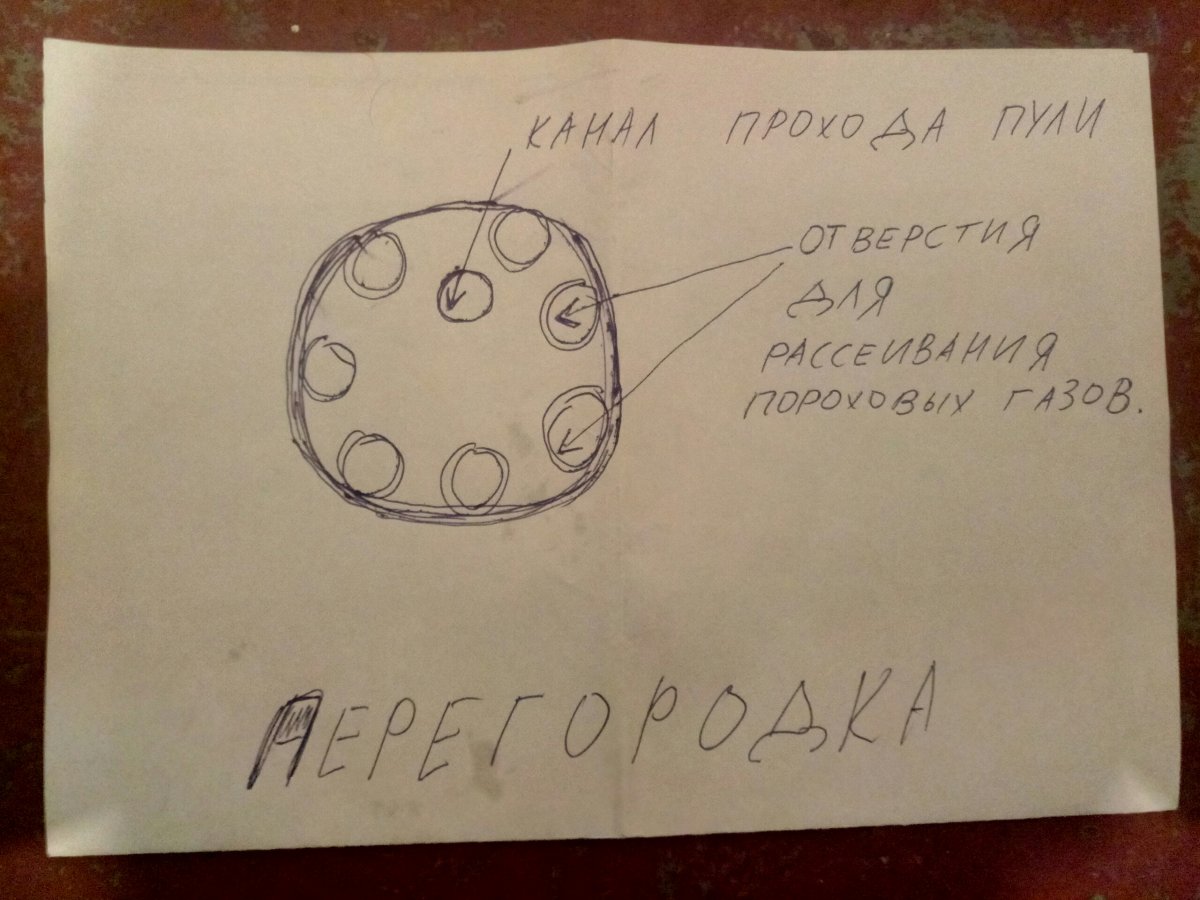 КАНАЛ ПРОХОДА ПУЛИ
ОТВЕРСТИЯ
ДЛЯ
РАССЕИВАНИЯ
ПОРОХОВЫХ ГАЗОВ.
ПЕРЕГОРОДКА